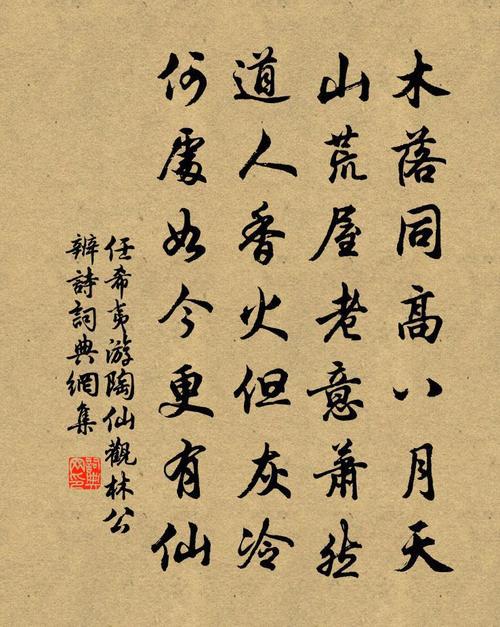 木落同高八月天
山荒屋老意萧然
道人香火但灰冷
何處如今更有仙
任希夷游陶仙觀林公
辨詩詞典網集
詞典网印